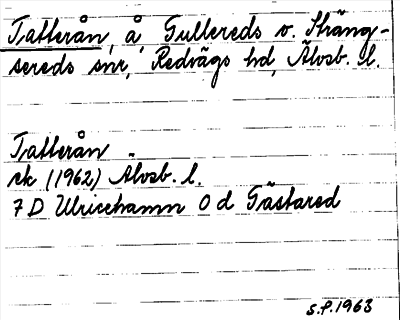 Tatterån, å Gullereds o. Sträng-
sereds snr, Redvägs hd, Älvsb. l.
Tatterån
ek (1962) Älvsb. l.
7 D Ulricehamn 0 d Gästared
S.P. 1963